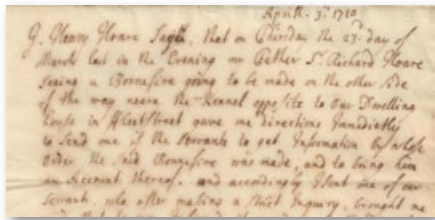 Aprill. 3d. 1710
J. Henry Hoare Sayth, that on Thursday the 23d. day of
March last in the Evening my Father Sr. Richard Hoare
seeing a Bonnefire going to be made on the other side
of the way neere the Kennel opposite to Our Dwelling
house in Fleetstreet gave me directions Immediatly
to Send one of the Servants to get Information by whose
Order the Said Bonnefire was made, and to bring him
an Account thereof. and accordingly I Sent one of our
Servants, who after making a Strict Inquiry, brought me